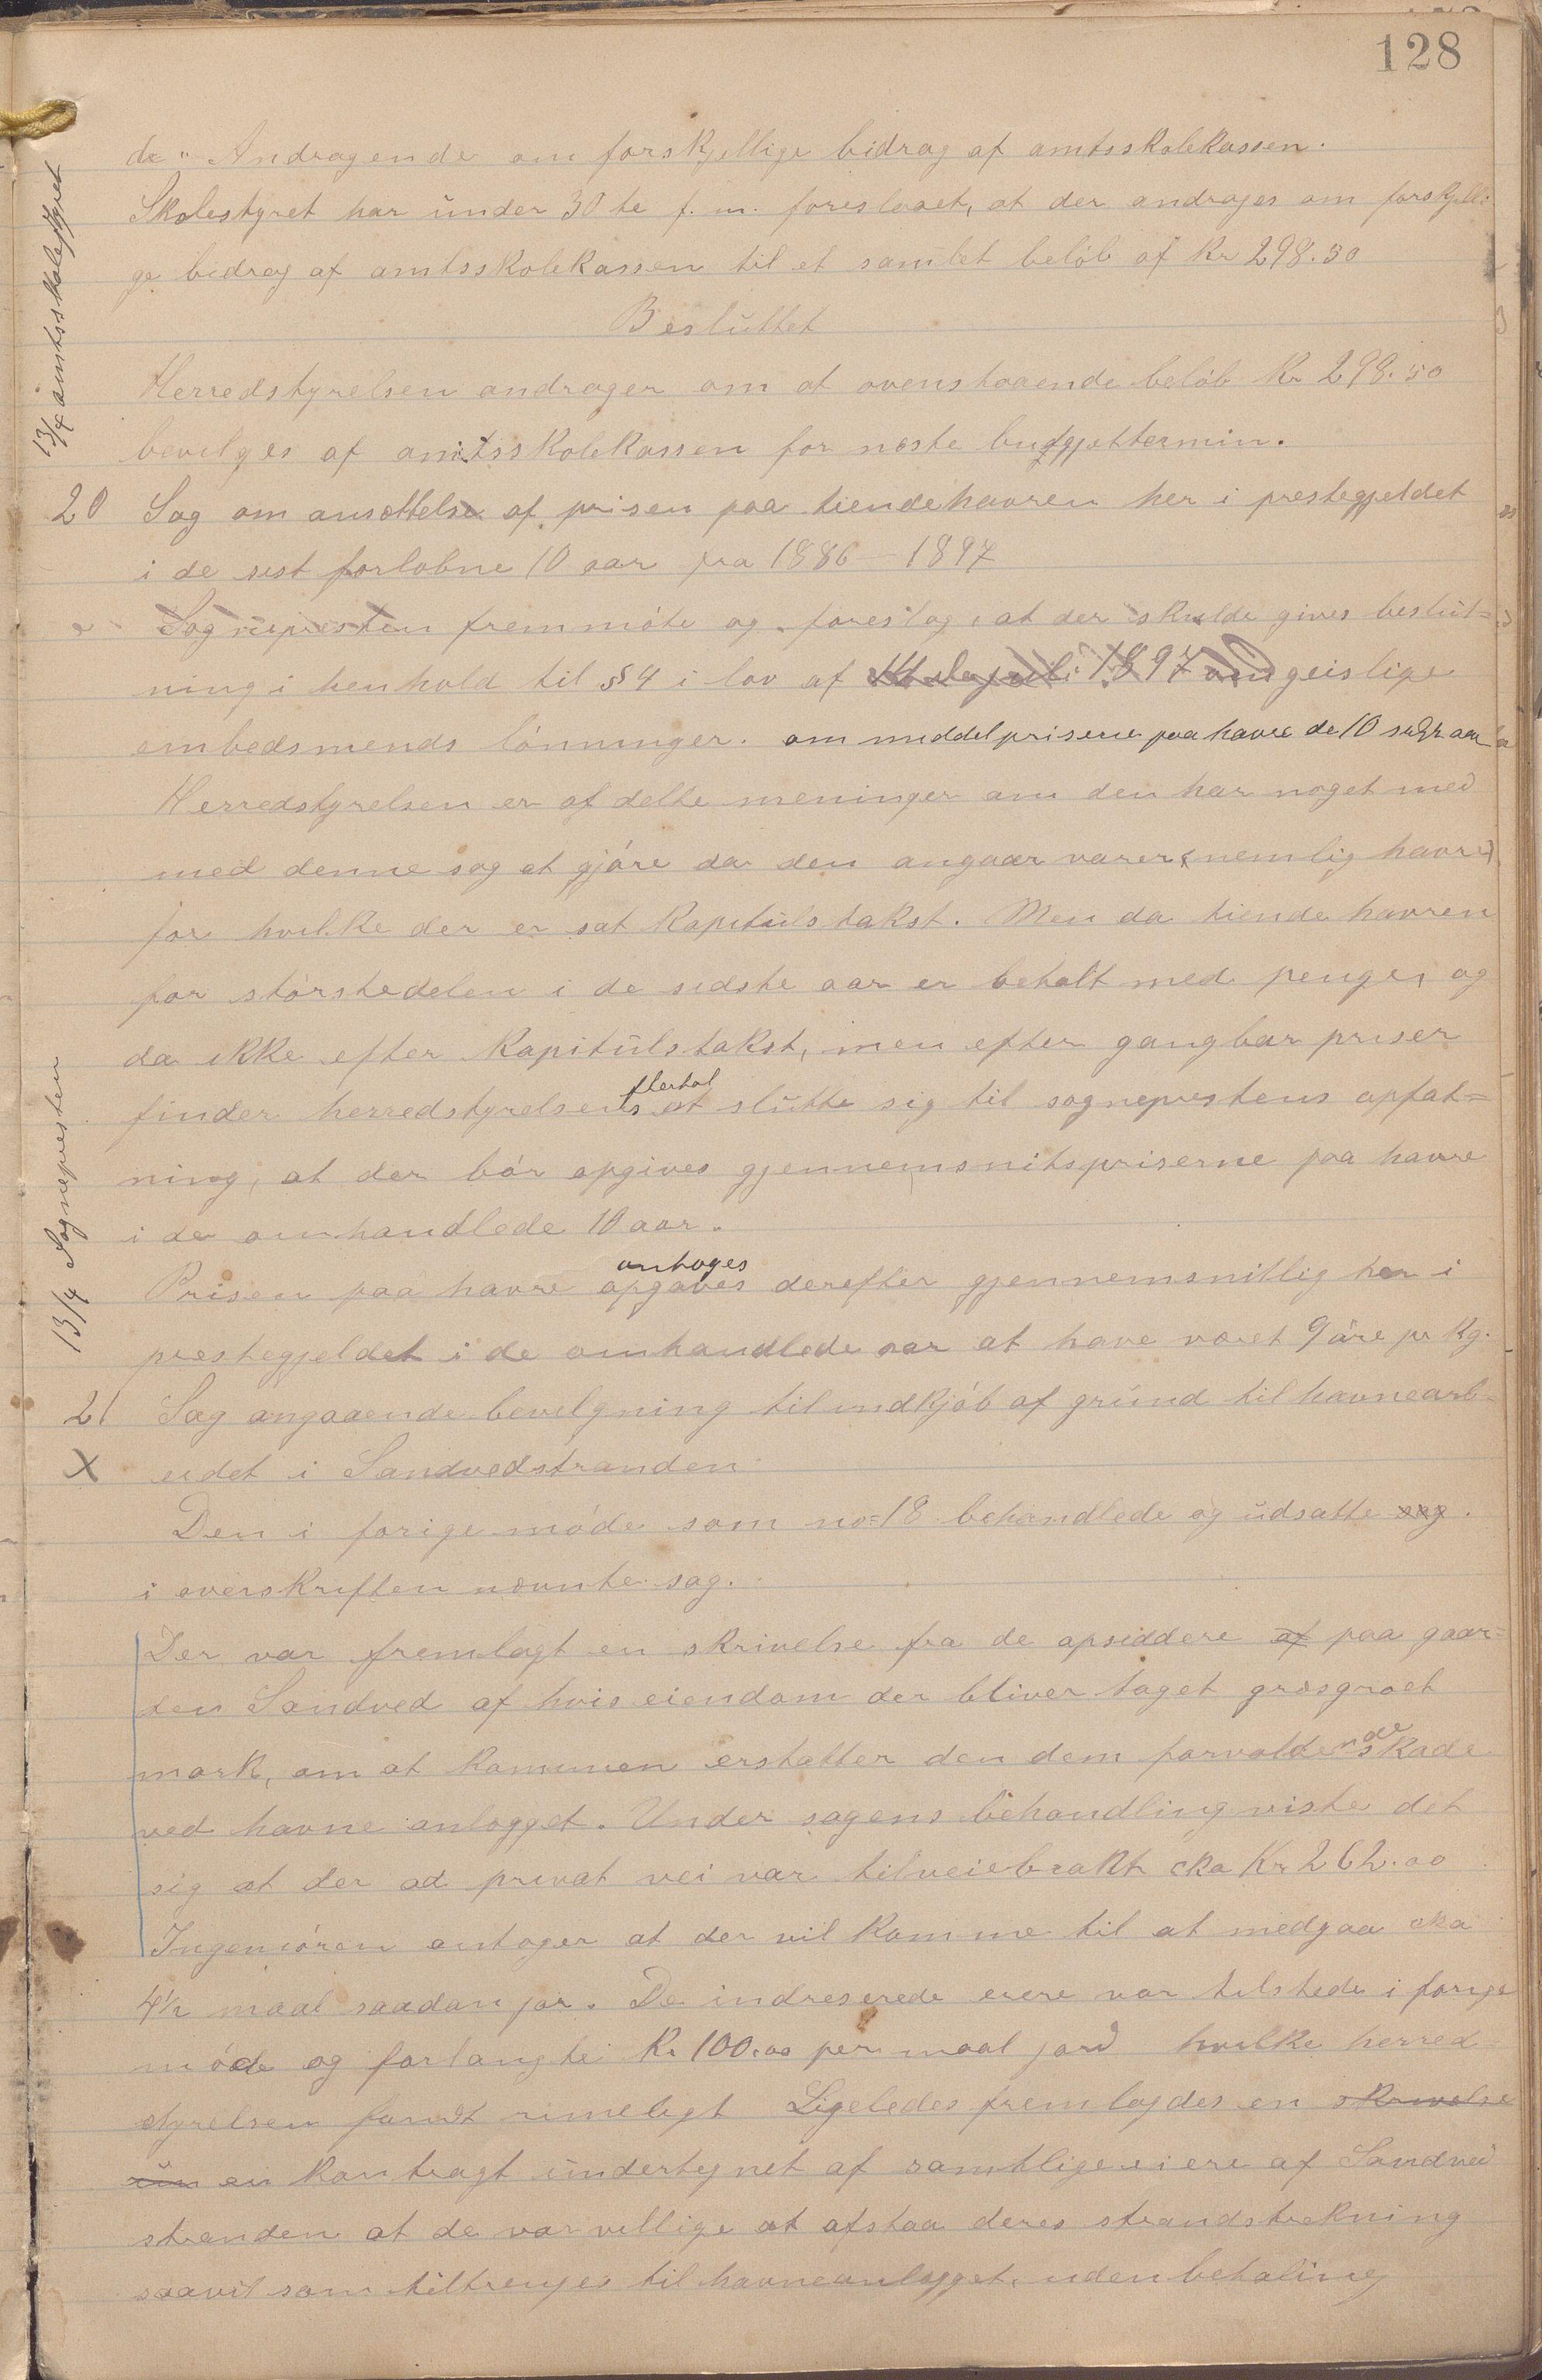 128
de" Andragende om forskjellige bidrag af amtsskolekassen.
Skolestyret har under 30te f.m. foreslaaet, at der andrages om forskjelli-
ge bidrag af amtsskolekassen til et samlet beløb af Kr 298.50
13/4 amtsskolestyret
Besluttet
Herredstyrelsen andrager om at ovenstaaende beløb Kr 298.50
bevilges af amtsskolekassen for næste budgjettermin.
20 Sag om ansættelse af prisen paa tiendehavren her i prestegjeldet
i de sist forløbne 10 aar fra 1886-1897
Sognepresten fremmøte og foreslog, at der skulde gives beslut=
ning i henhold til §4 i lov af 1897 om geislige
embedsmends lønninger. om middelprisene paa havre de 10 sidste aar
Herredstyrelsen er af delte meninger om den har noget med
med denne sag at gjøre da den angaar varer (nemlig havre)
for hvilke der er sat Kapitulstakst. Men da tiende havren
for størstedelen i de sidste aar er betalt med penge, og
da ikke efter Kapitulstakst, men efter gangbar priser
finder herredstyrelsens flertal at slutte sig til sogneprestens opfat=
ning, at der bør opgives gjennemsnitspriserne paa havre
i de omhandlede 10 aar.
13/4 Sognepresten
Prisen paa havre opgaves antoges derefter gjennemsnitlig her i
prestegjeldet i de omhandlede aar at have været 9 øre pr Kg.
21 Sag angaaende bevilgning til indkjøb af grund til havnearb-
X eidet i Sandvedstranden
Den i forige møde som no=18 behandlede og udsatte sag.
i overskriften nævnte sag.
Der var fremlagt en skrivelse fra de opsiddere af paa gaar=
den Sandved af hvis eiendom der bliver taget græsgroet
mark, om at Kommunen erstatter den dem forvoldende skade
ved havne anlægget. Under sagens behandling viste det
sig at der ad privat vei var tilveiebrakt cka Kr 262.00
Ingeniøren antager at der vil komme til at medgaa cka
4½ maal saadan jor. De indreserede eiere var tilstede i forige
møde og forlangte Kr 100.00 per maal jord hvilke herred-
styrelsen fandt rimeligt Ligeledes fremlagdes en skrivelse
un en Kontragt undertegnet af samtlige eiere af Sandved
stranden at de var villige at afstaa deres strandstrekning
saavit som tiltrenges til havneanlægget, uden betaling